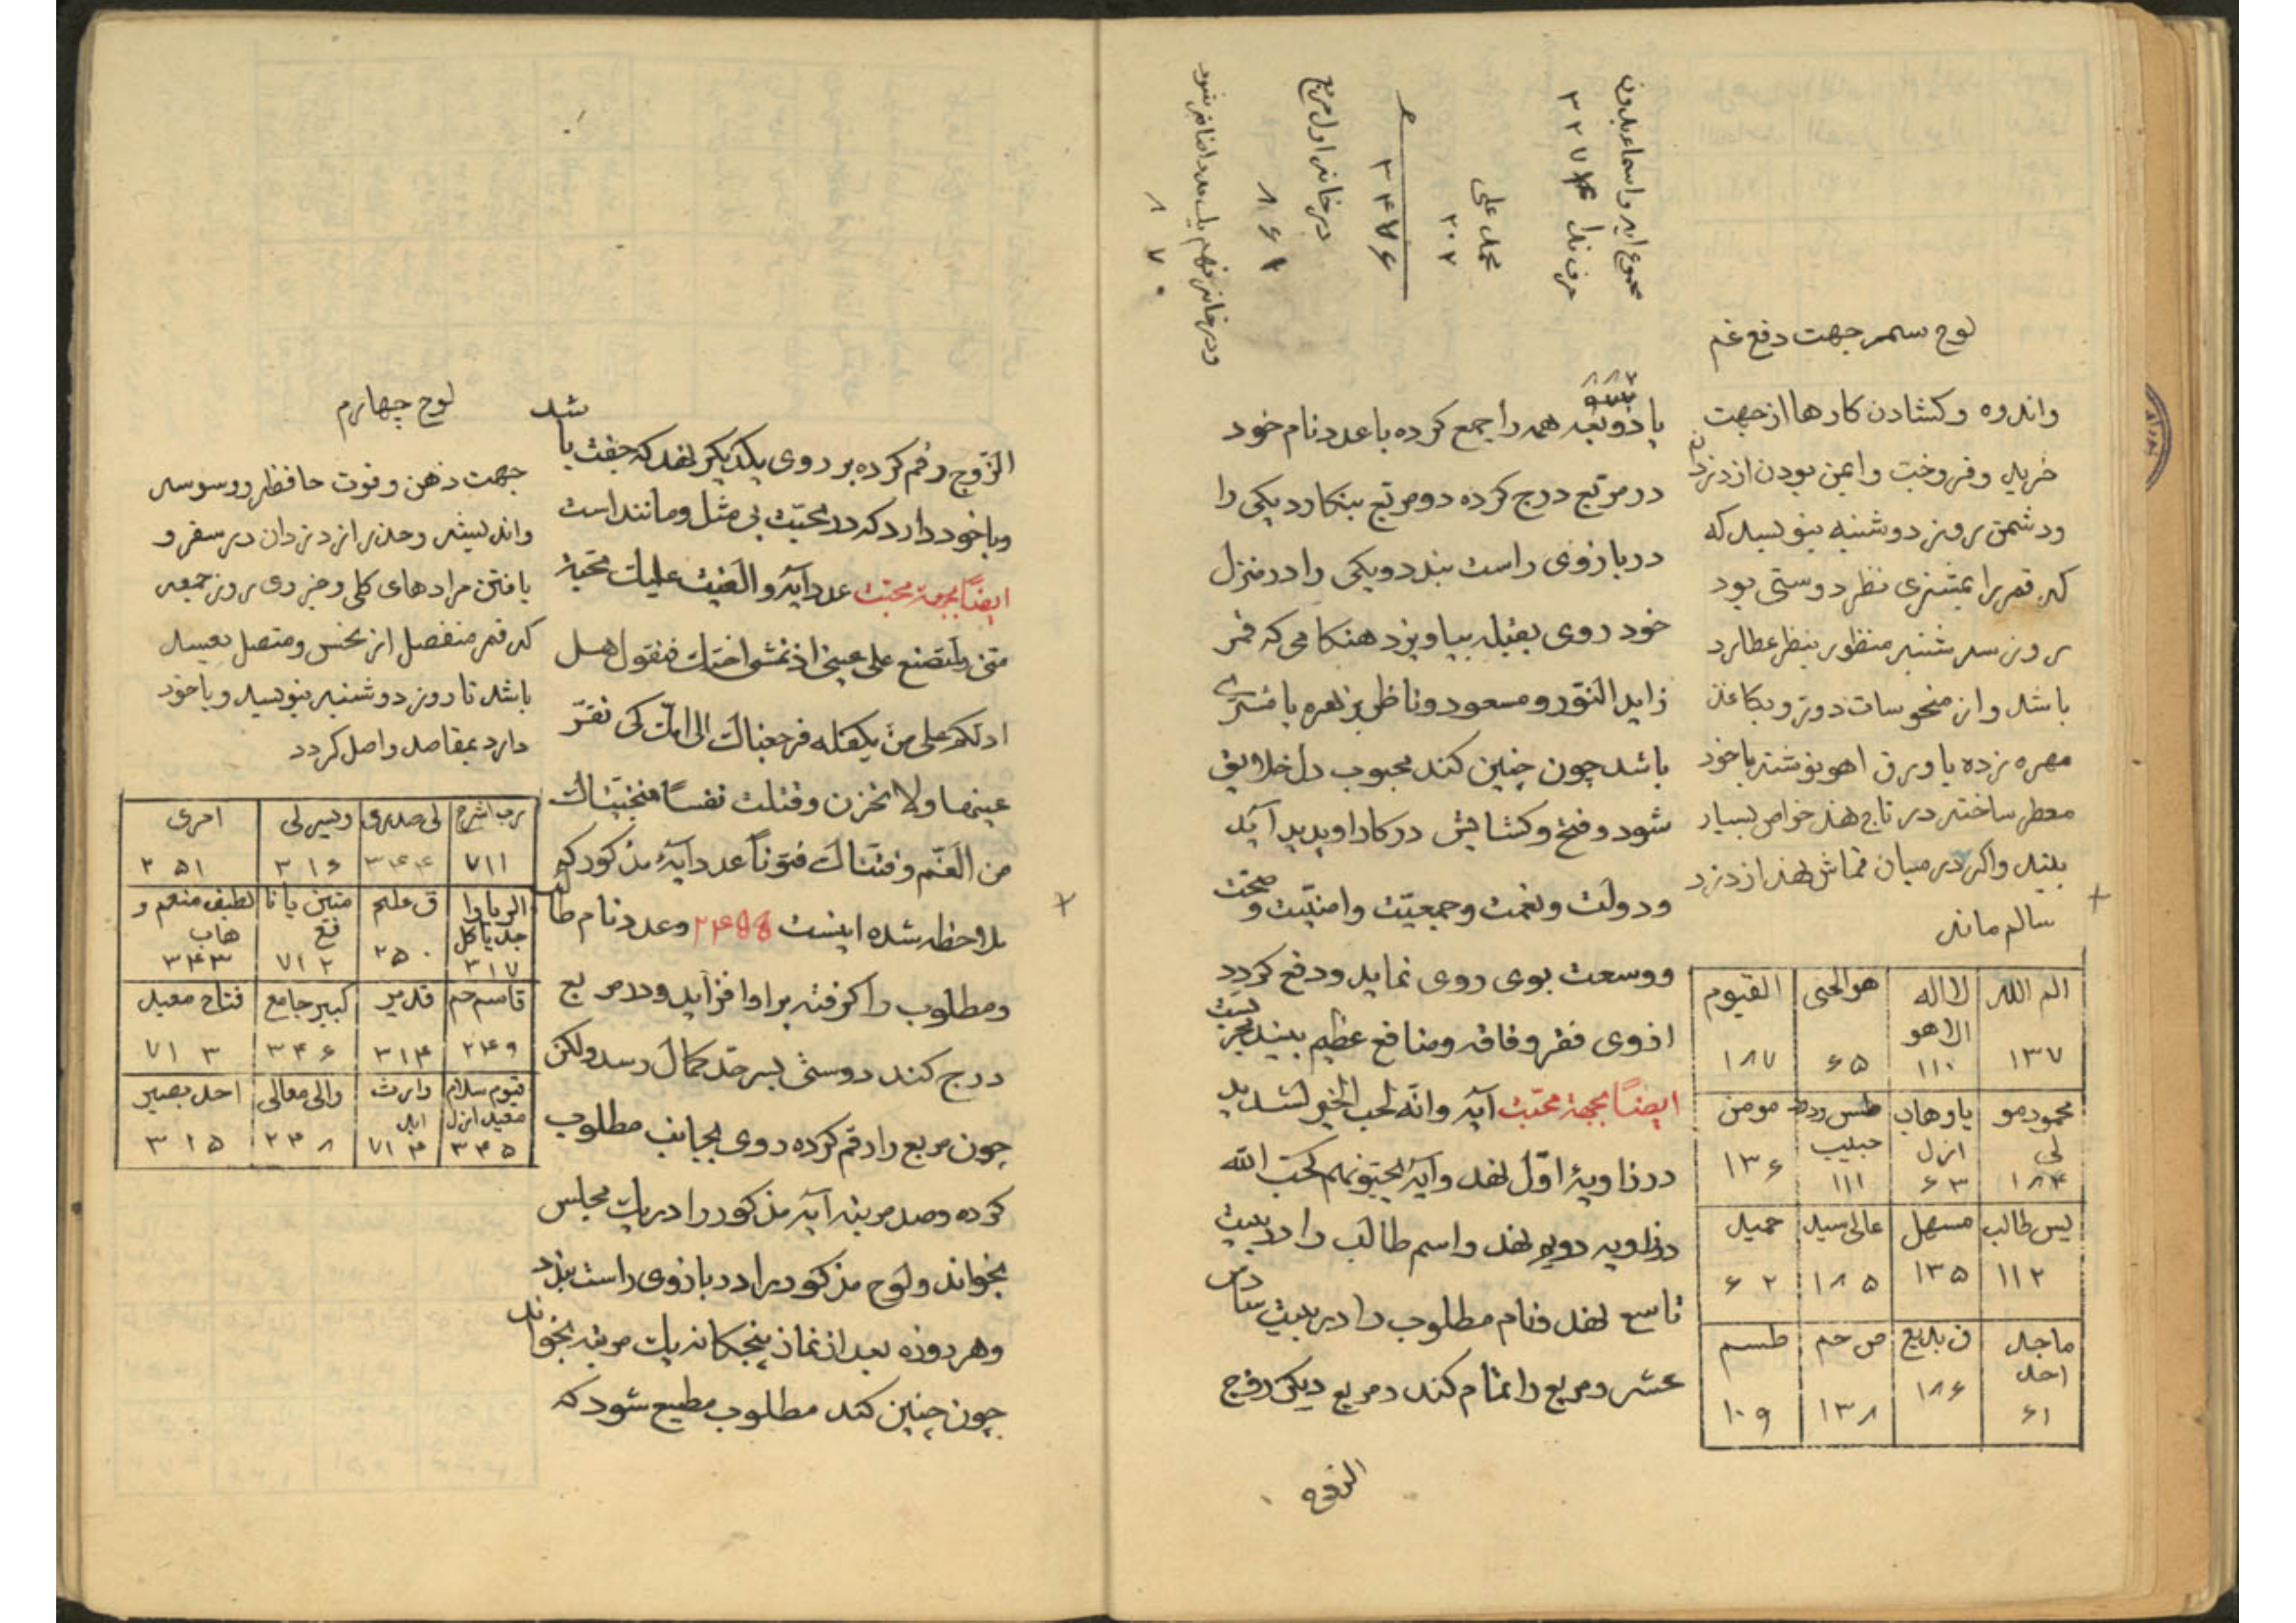 مجموع ایه و اسماء بدون
حرف ندا ۳۲۷۴
محمد علی
۲۰۲
۳۴۷۶
در خانه اول مربع
۸۶۱
ودر خانه نهم یک عدد اضافه شود
۸۷۰
لوح سیم جهت دفع غم
واندوه وکشادن کارها از جهت
خرید وفروخت وایمن بودن از دزدان
ودشمن روز دوشنبه بنویسد که
که قمر را بمشتری نظر دوستی بود
روز سه شنبه منظور بنظر عطارد
باشد واز منحوسات دور وبکاغذ
مهره زده یا ورق اهو نوشته با خود
معطر ساخته در تاج نهد خواص بسیار
بیند واکر در میان قماش نهد از دزد
سالم ماند
الم الله لا اله الا هو هو الحی القیوم
۱۳۷ ۱۱۰ ۶۵ ۱۸۷
محمود مولی یا وهاب ازل طس ودود حبیب مومن
۱۸۴ ۶۳ ۱۱۱ ۱۳۶
یس طالب مسهل عالی سید حمید
۱۱۲ ۱۳۵ ۱۸۵ ۶۲
ماجد احد ق بدیع ص حم طسم
۶۱ ۱۸۶ ۱۳۸ ۱۰۹
۸۸۲
همه را جمع کرده با عدد نام خود
در مربع درج کرده دو مربع بنکارد یکی را
در بازوی راست بندد ویکی را در منزل
خود روی بقبله بیاویزد هنکامی که قمر
زاید النور ومسعود وناظر بزهره یا مشتری
باشد چون چنین کند محبوب دل خلایق
شود وفتح وکشایش در کار او پدید آید
ودولت ونعمت وجمعیت وامنیت وصحت
ووسعت بوی روی نماید ودفع کردد
از وی فقر وفاقه ومنافع عظیم بیند مجربست
ایضًا بجهة محبت آیه وانه لحب الخیر لشدید
در زاویهٔ اول نهد وآیهٔ یحبونهم کحب الله
در زاویه دویم نهد واسم طالب را در بیت
تاسع نهد ونام مطلوب را در بیت سادس
عشر ومربع را تمام کند ومربع دیکر زوج
الزوج
الزّوج رقم کرده بر روی یکدیکر نهد که جفت باشد
وبا خود دارد که در محبّت بی مثل ومانند است
ایضًا بجهة محبّت عدد آیهٔ والقیت علیک محبّة
منّی ولتصنع علی عینی اذ تمشی اختک فتقول هل
ادلکم علی من یکفله فرجعناک الی امّک کی تقرّ
عینها ولا تحزن وقتلت نفسًا فنجّیناک
من الغمّ وفتنّاک فتونًا عدد آیهٔ مذکور که
ملاحظه شده اینست وعدد نام طالب
ومطلوب را کرفته بر او افزاید ودر مربع
درج کند دوستی بسر حدّ کمال رسد ولکن
چون مربع را رقم کرده روی بجانب مطلوب
کرده وصد مرتبه آیه مذکور را در یک مجلس
بخواند ولوح مذکور را در بازوی راست بندد
وهر روزه بعد از نماز پنجکانه یک مرتبه بخواند
چون چنین کند مطلوب مطیع شود که
لوح چهارم
جهت ذهن وقوت حافظه ووسوسه
واندیشه وحذر از دزدان در سفر و
یافتن مرادهای کلی وجزوی روز جمعه
که قمر منفصل از نحس ومتصل بسعد
باشد تا روز دوشنبه بنویسد وبا خود
دارد بمقاصد واصل کردد
رب اشرح لی صدری ویسر لی امری
۷۱۱ ۳۴۴ ۳۱۶ ۲۵۱
ق علیم لطیف منعم وهاب
۳۱۷ ۲۵۰ ۷۱۲ ۳۴۳
قاسم حم قدیر کبیر جامع فتاح معید
۲۴۹ ۳۱۴ ۳۴۶ ۷۱۳
قیوم سلام معید ازل وارث والی معالی احد بصیر
۳۴۵ ۷۱۴ ۲۴۸ ۳۱۵